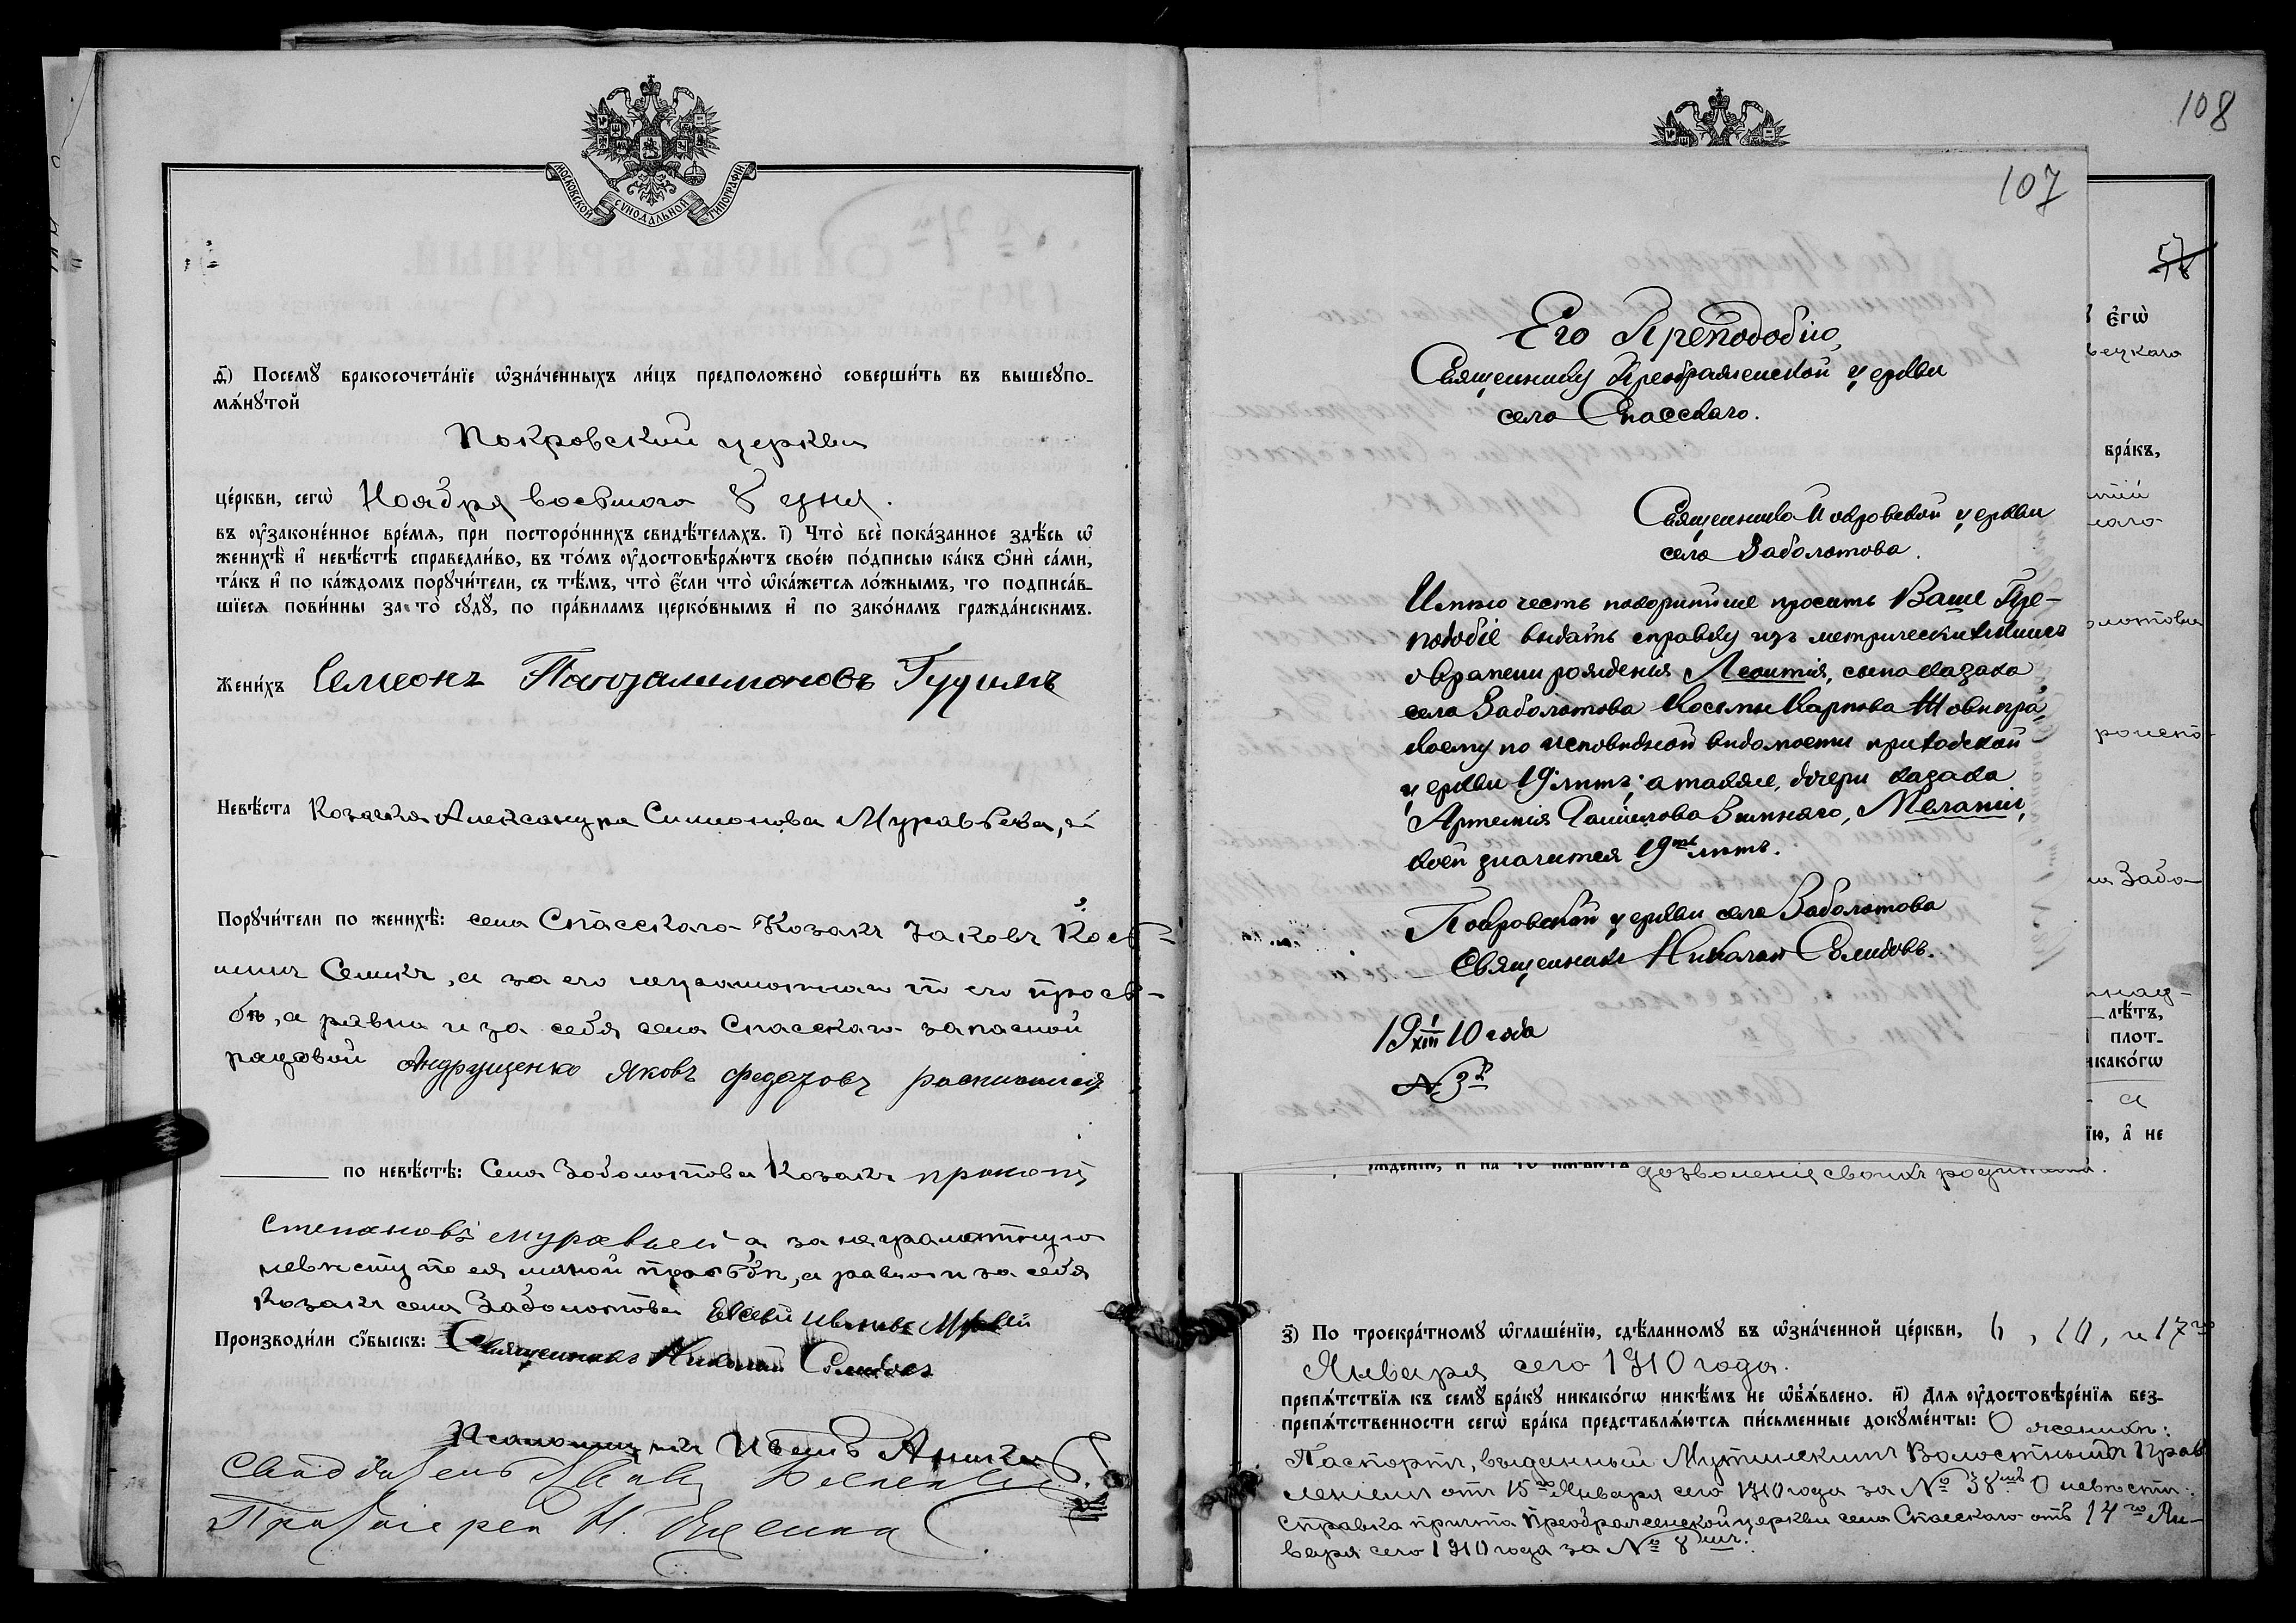 МОСКОВСКОЙ СѴНОДАЛЬНОЙ ТИПОГРАФІИ.
Ѳ҃) Посемꙋ бракосочета́нїе ѡ҆зна́ченныхъ ли́цъ предположено̀ соверши́ть въ вышеꙋпо-
мѧ́нꙋтой
Покровской церкви
це́ркви, сегѡ̀ Ноября восьмого 8 дня.
въ ᲂу҆законе́нное вре́мѧ, при посторо́ннихъ свидѣ́телѧхъ. і҃) Что̀ всѐ пока́занное здѣ́сь ѡ҆
женихѣ̀ и҆ невѣ́стѣ справедли́во, въ то́мъ ᲂу҆достовѣрѧ́ютъ свое́ю по́дписью ка́къ ѻ҆нѝ са́ми,
та́къ и҆ по ка́ждомъ порꙋчи́тели, съ тѣ́мъ, что̀ є҆́сли что̀ ѡ҆ка́жется ло́жнымъ, то подписа́в-
шїеся пови́нны за то̀ сꙋдꙋ̀, по пра́виламъ церко́внымъ и҆ по зако́намъ гражда́нскимъ.
Жени́хъ Семеонъ Панталимоновъ Гудимъ
Невѣ́ста Козачка Александра Симионова Муравьева,
Порꙋчи́тели по женихѣ̀: села Спасскаго Козакъ Іаковъ Косьм-
инъ Семикъ, а за его неграмотнаго по его просьбѣ-
бѣ, а равно и за себя села Спасскаго запасной
рядовой Андрущенко Яковъ Федоровъ росписался
по невѣ́стѣ: Села Заболотова Козакъ прокопій
степановъ муравьей а за неграмотную
невѣсту по ея личной просьбѣ, а равно и за себя
Козакъ села Заболотова Евсевій Ивановъ
Производи́ли ѻ҆́быскъ: Священникъ Николай
Псаломщикъ Иванъ
107
Его Преподобію,
Священнику Преображенской церкви
села Спасскаго.
Священника Покровской церкви
села Заболотова.
Имѣю честь покорнѣйше просить Ваше Пре-
подобіе выдать справку изъ метрическихъ книгъ
о времени рожденія Леонтія, сына казака
села Заболотова Косьмы Карпова
коему по исповѣдной вѣдомости приходской
церкви 19 лѣтъ; а также, дочери казака
Артемія Даніилова Зимняго, Меланіи,
коей значится 19ть лѣтъ.
Покровской церкви села Заболотова
Священникъ Николай
19 1/XIII 10 года
№ 3й
108
57
є҆гѡ̀
вецкаго
бра́къ,
лѣ́тъ,
плот-
никако́гѡ
а
їю, а҆ не
жденїю, и҆ на то̀ имѣ́ютъ дозволенія своихъ родителей.
З҃) По троекра́тномꙋ ѡ҆глаше́нїю, сдѣ́ланномꙋ въ ѡ҆зна́ченной це́ркви, 6, 10, и 17го
Января сего 1910 года.
препѧ́тствїя къ семꙋ̀ бра́кꙋ никако́гѡ никѣ́мъ не ѡ҆б̾ѧ́влено. и҃) Для ᲂу҆достовѣре́нїя без-
препѧ́тственности сегѡ̀ бра́ка представлѧ́ются пи́сьменные докꙋме́нты: О женихѣ:
Паспортъ, выданный Мутинскимъ Волостнымъ Прав
леніемъ отъ 15го Января сего 1910 года за № 38мъ О невѣстѣ:
справка причта Преображенской церкви села Спасскаго отъ 14го Ян-
варя сего 1910 года за № 8мъ.